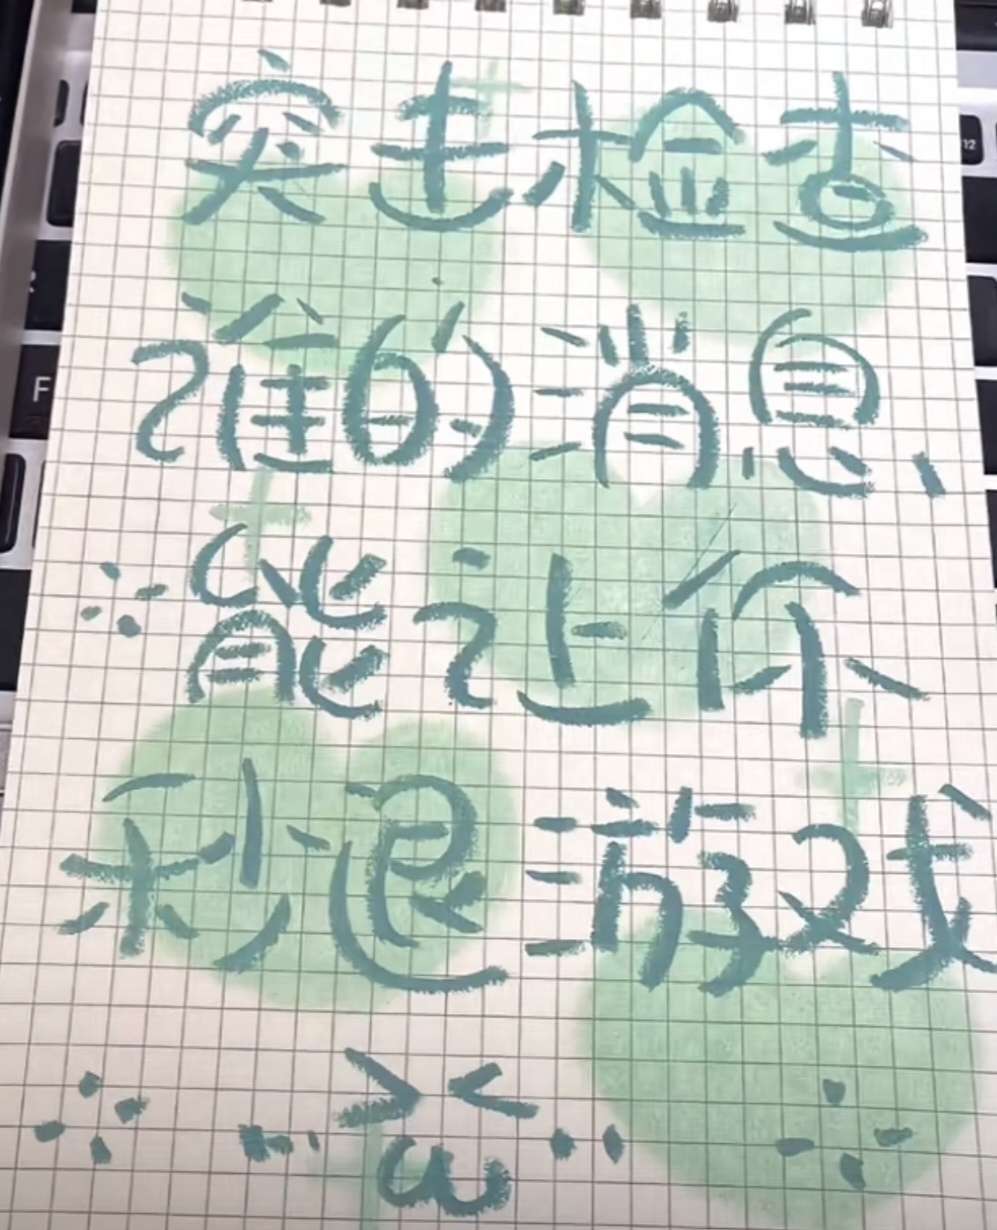 突击检查
谁的消息、
能让你
秒退游戏
F
12